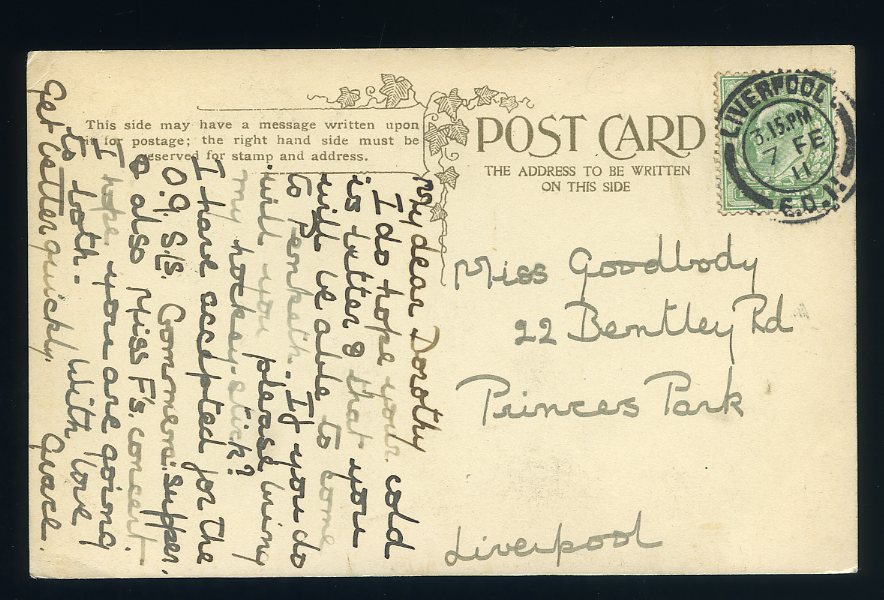 This side may have a message written upon
it for postage; the right hand side must be
reserved for stamp and address.
POST CARD
THE ADDRESS TO BE WRITTEN
ON THIS SIDE
LIVERPOOL
3.15.PM
7 FE
11
E.D.
Miss Goodbody
22 Bentley Rd
Princes Park
Liverpool
My dear Dorothy
I do hope your cold
is better & that you
will be able to come
to Penketh. If you do
will you please bring
my hockey-stick?
I have accepted for the
O.G. S/S. Commem: supper,
& also Miss F's. concert
I hope you are going
to both. With love
Get better quickly. Grace.